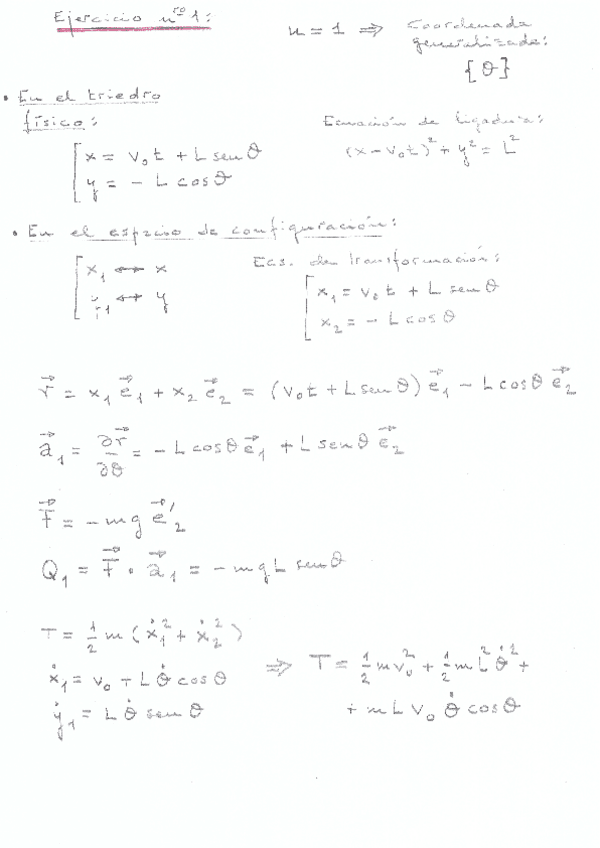 Ejercicio nro 1:
n = 1 ⇒ Coordenada generalizada: {θ}
• En el triedro físico:
[ x = v₀t + L senθ
y = - L cosθ
Ecuación de ligadura:
(x - v₀t)² + y² = L²
• En el espacio de configuración:
[ x₁ ↔ x
↔ y
Ecs. de transformación:
[ x₁ = v₀t + L senθ
x₂ = - L cosθ
r⃗ = x₁ e⃗₁ + x₂ e⃗₂ = (v₀t + L senθ) e⃗₁ - L cosθ e⃗₂
a⃗₁ = ∂r⃗/∂θ = - L cosθ e⃗₁ + L senθ e⃗₂
F⃗ = - mg e⃗'₂
Q₁ = F⃗ · a⃗₁ = - mgL senθ
T = ½ m (ẋ₁² + ẋ₂²)
ẋ₁ = v₀ + L θ̇ cosθ
ẏ₁ = L θ̇ senθ
⇒ T = ½ m v₀² + ½ m L² θ̇² +
+ m L v₀ θ̇ cosθ